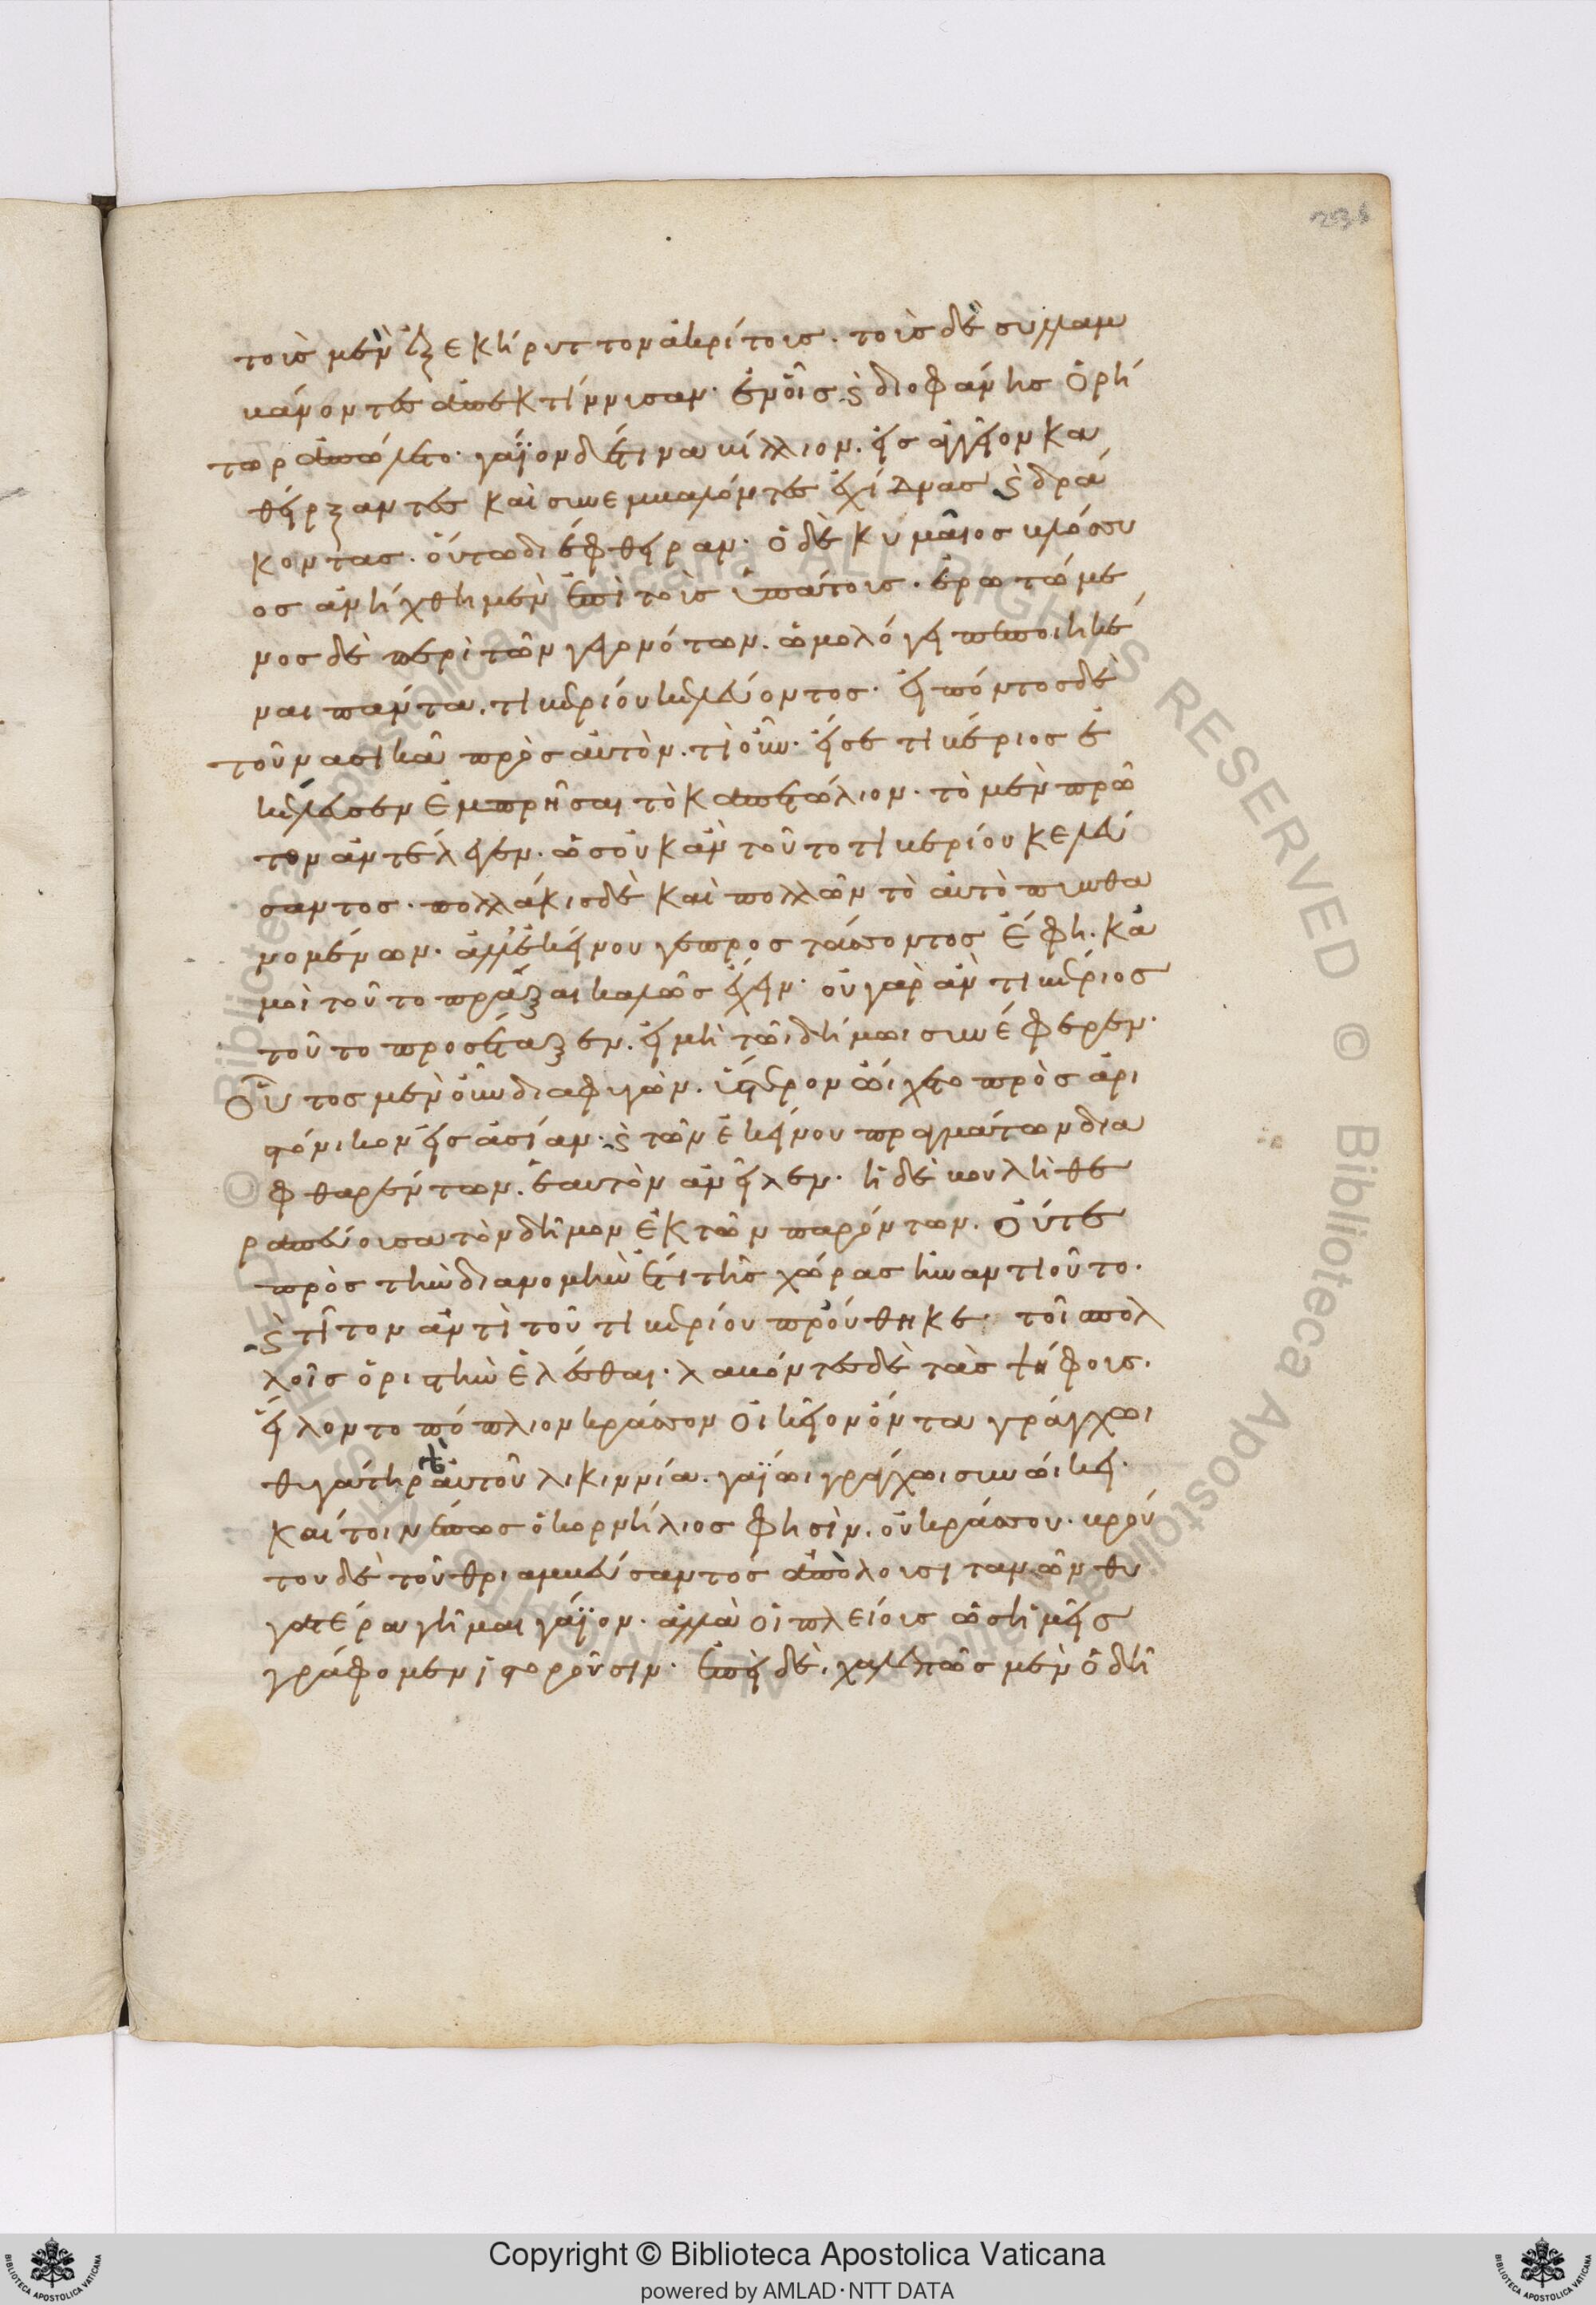 231
τοὺς μὲν ἐξεκήρυττον ἀκρίτους· τοὺς δὲ συλλαμ
βάνοντες ἀπεκτίννυσαν· ἐν οἷς καὶ διοφάνης ὁ ῥή
τωρ ἀπώλετο· γάϊον δέ τινα βίλλιον. εἰς ἀγγεῖον κα
θείρξαντες καὶ συνεμβαλόντες ἐχίδνας καὶ δρά
κοντας. οὕτω διέφθειραν· ὁ δὲ κυμαῖος βλόσσι
ος ἀνήχθη μὲν ἐπὶ τοὺς ὑπάτους. ἐρωτώμε
νος δὲ περὶ τῶν γεγονότων. ὡμολόγει πεποιηκέ
ναι πάντα. τιβερίου κελεύοντος· εἰπόντος δὲ
τοῦ νασικᾶ πρὸς αὐτὸν. τί οὖν. εἴ σε τιβέριος ἐ
κέλευσεν ἐμπρῆσαι τὸ καπετώλιον. τὸ μὲν πρῶ
τον ἀντέλεγεν. ὡς οὐκ ἂν τοῦτο τιβερίου κελεύ
σαντος. πολλάκις δὲ καὶ πολλῶν τὸ αὐτὸ πυνθα
νομένων. ἀλλ' ἐκείνου γε προστάσσοντος ἔφη. κἀ
μοὶ τοῦτο πρᾶξαι καλῶς εἶχεν· οὐ γὰρ ἂν τιβέριος
τοῦτο προσέταξεν. εἰ μὴ τῶι δήμωι συνέφερεν·
Οὗτος μὲν οὖν διαφυγὼν. ὕστερον ὤιχετο πρὸς ἀρι
στόνικον εἰς ἀσίαν. καὶ τῶν ἐκείνου πραγμάτων δια
φθαρέντων. ἑαυτὸν ἀνεῖλεν· ἡ δὲ βουλὴ θε
ραπεύουσα τὸν δῆμον ἐκ τῶν παρόντων. οὔτε
πρὸς τὴν διανομὴν ἔτι τῆς χώρας ἠναντιοῦτο.
καὶ τίτον ἀντὶ τοῦ τιβερίου προύθηκε τοῖς πολ
λοῖς ὁριστὴν ἑλέσθαι· λαβόντες δὲ τὰς ψήφους.
εἵλοντο πόπλιον κράσσον οἰκεῖον ὄντα γράγχωι
θυγάτηρ γὰρ αὐτοῦ λικιννία. γαΐωι γράγχωι συνώικει.
καίτοι νέπως ὁ κορνήλιος φησὶν. οὐ κράσσου. βρού
του δὲ τοῦ θριαμβεύσαντος ἀπὸ λουσιτανῶν θυ
γατέρα γῆμαι γάϊον. ἀλλὰ οἱ πλείους ὡς ἡμεῖς
γράφομεν ἱστοροῦσιν· ἐπεὶ δὲ. χαλεπῶς μὲν ὁ δῆ